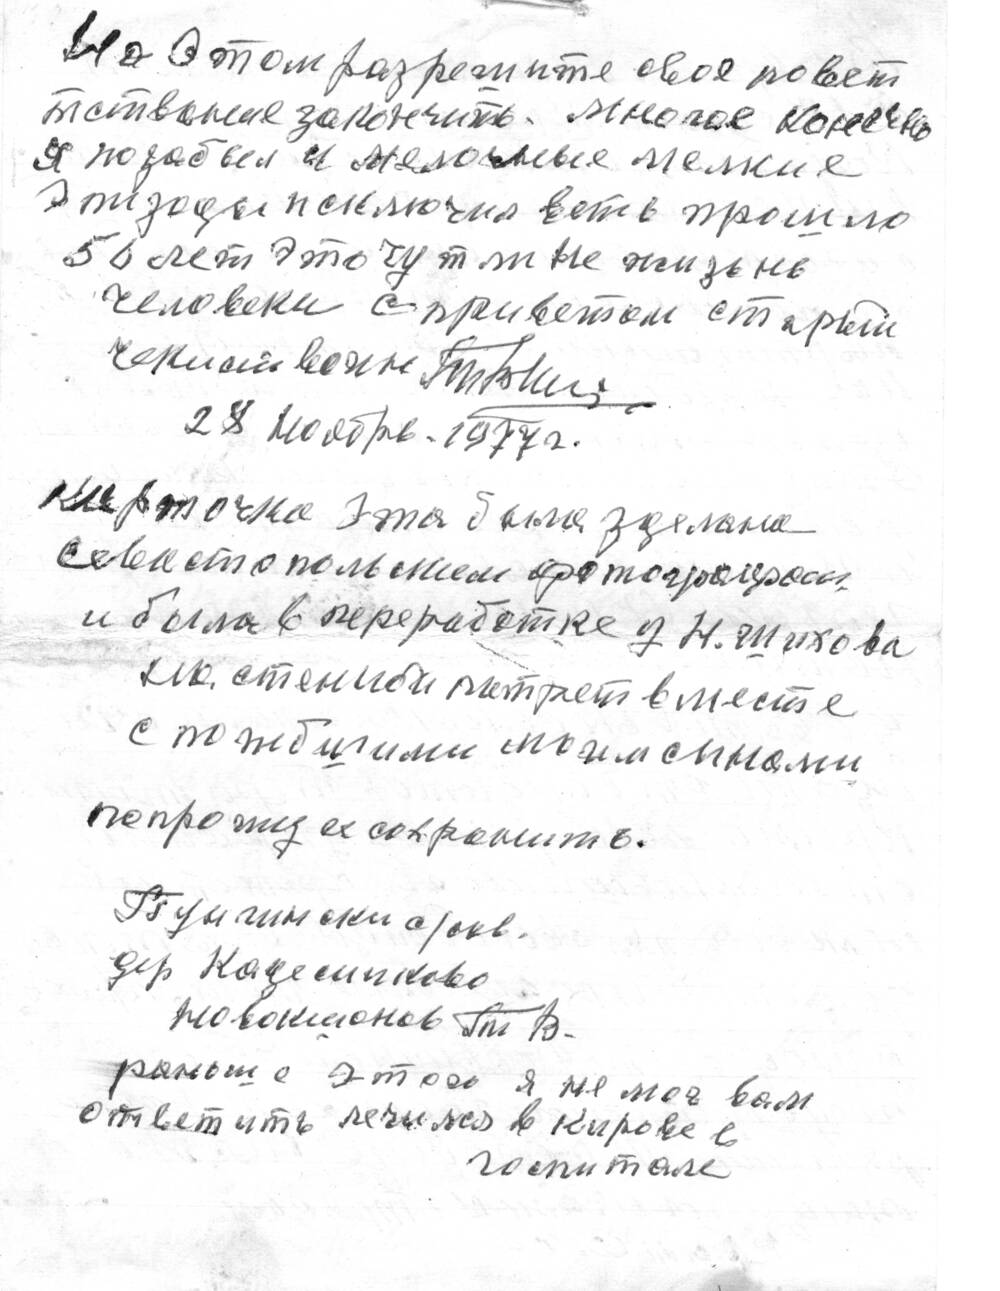 На Этом разрешите свое повест
тствование закончить. Многое конечно
я позабыл и мелочные мелкие
Эпизоды исключил веть прошло
50 лет Это чут ли не жизнь
человека с приветом старый
чекист воин
28 Ноября. 1977 г.
карточка Эта была зделана
севастопольским фотографом,
и была в переработке у Н. Шихова
на стене
с погибшими моим сынами
попрошу ее сохранить.
Тужинский с/сов.
дер
Новокшонов П В.
раньше этого я не мог вам
ответить лечился в Кирове в
госпитале